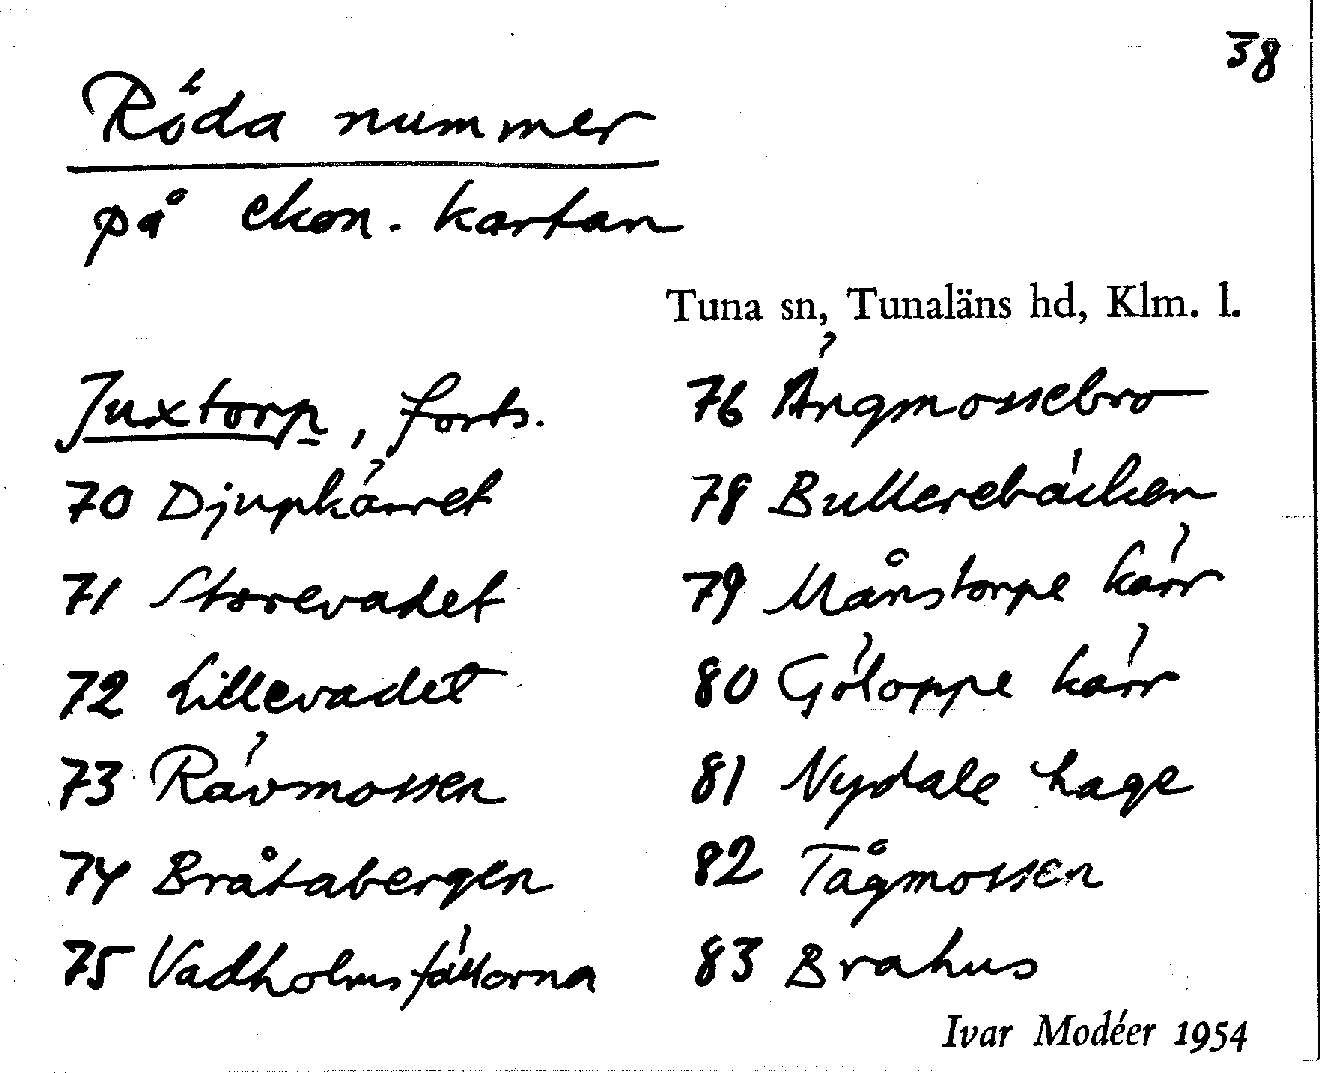 38
Röda nummer
på ekon. kartan
Tuna sn, Tunaläns hd, Klm. l.
Juxtorp, forts.
70 Djupkärret
71 Storevadet
72 Lillevadet
73 Rävmossen
74 Bråtabergen
75 Vadholmsfällorna
76 Ängmossebro
78 Bullerebäcken
79 Månstorpe kärr
80 Göloppe kärr
81 Nydale hage
82 Tågmossen
83 Brahus
Ivar Modéer 1954